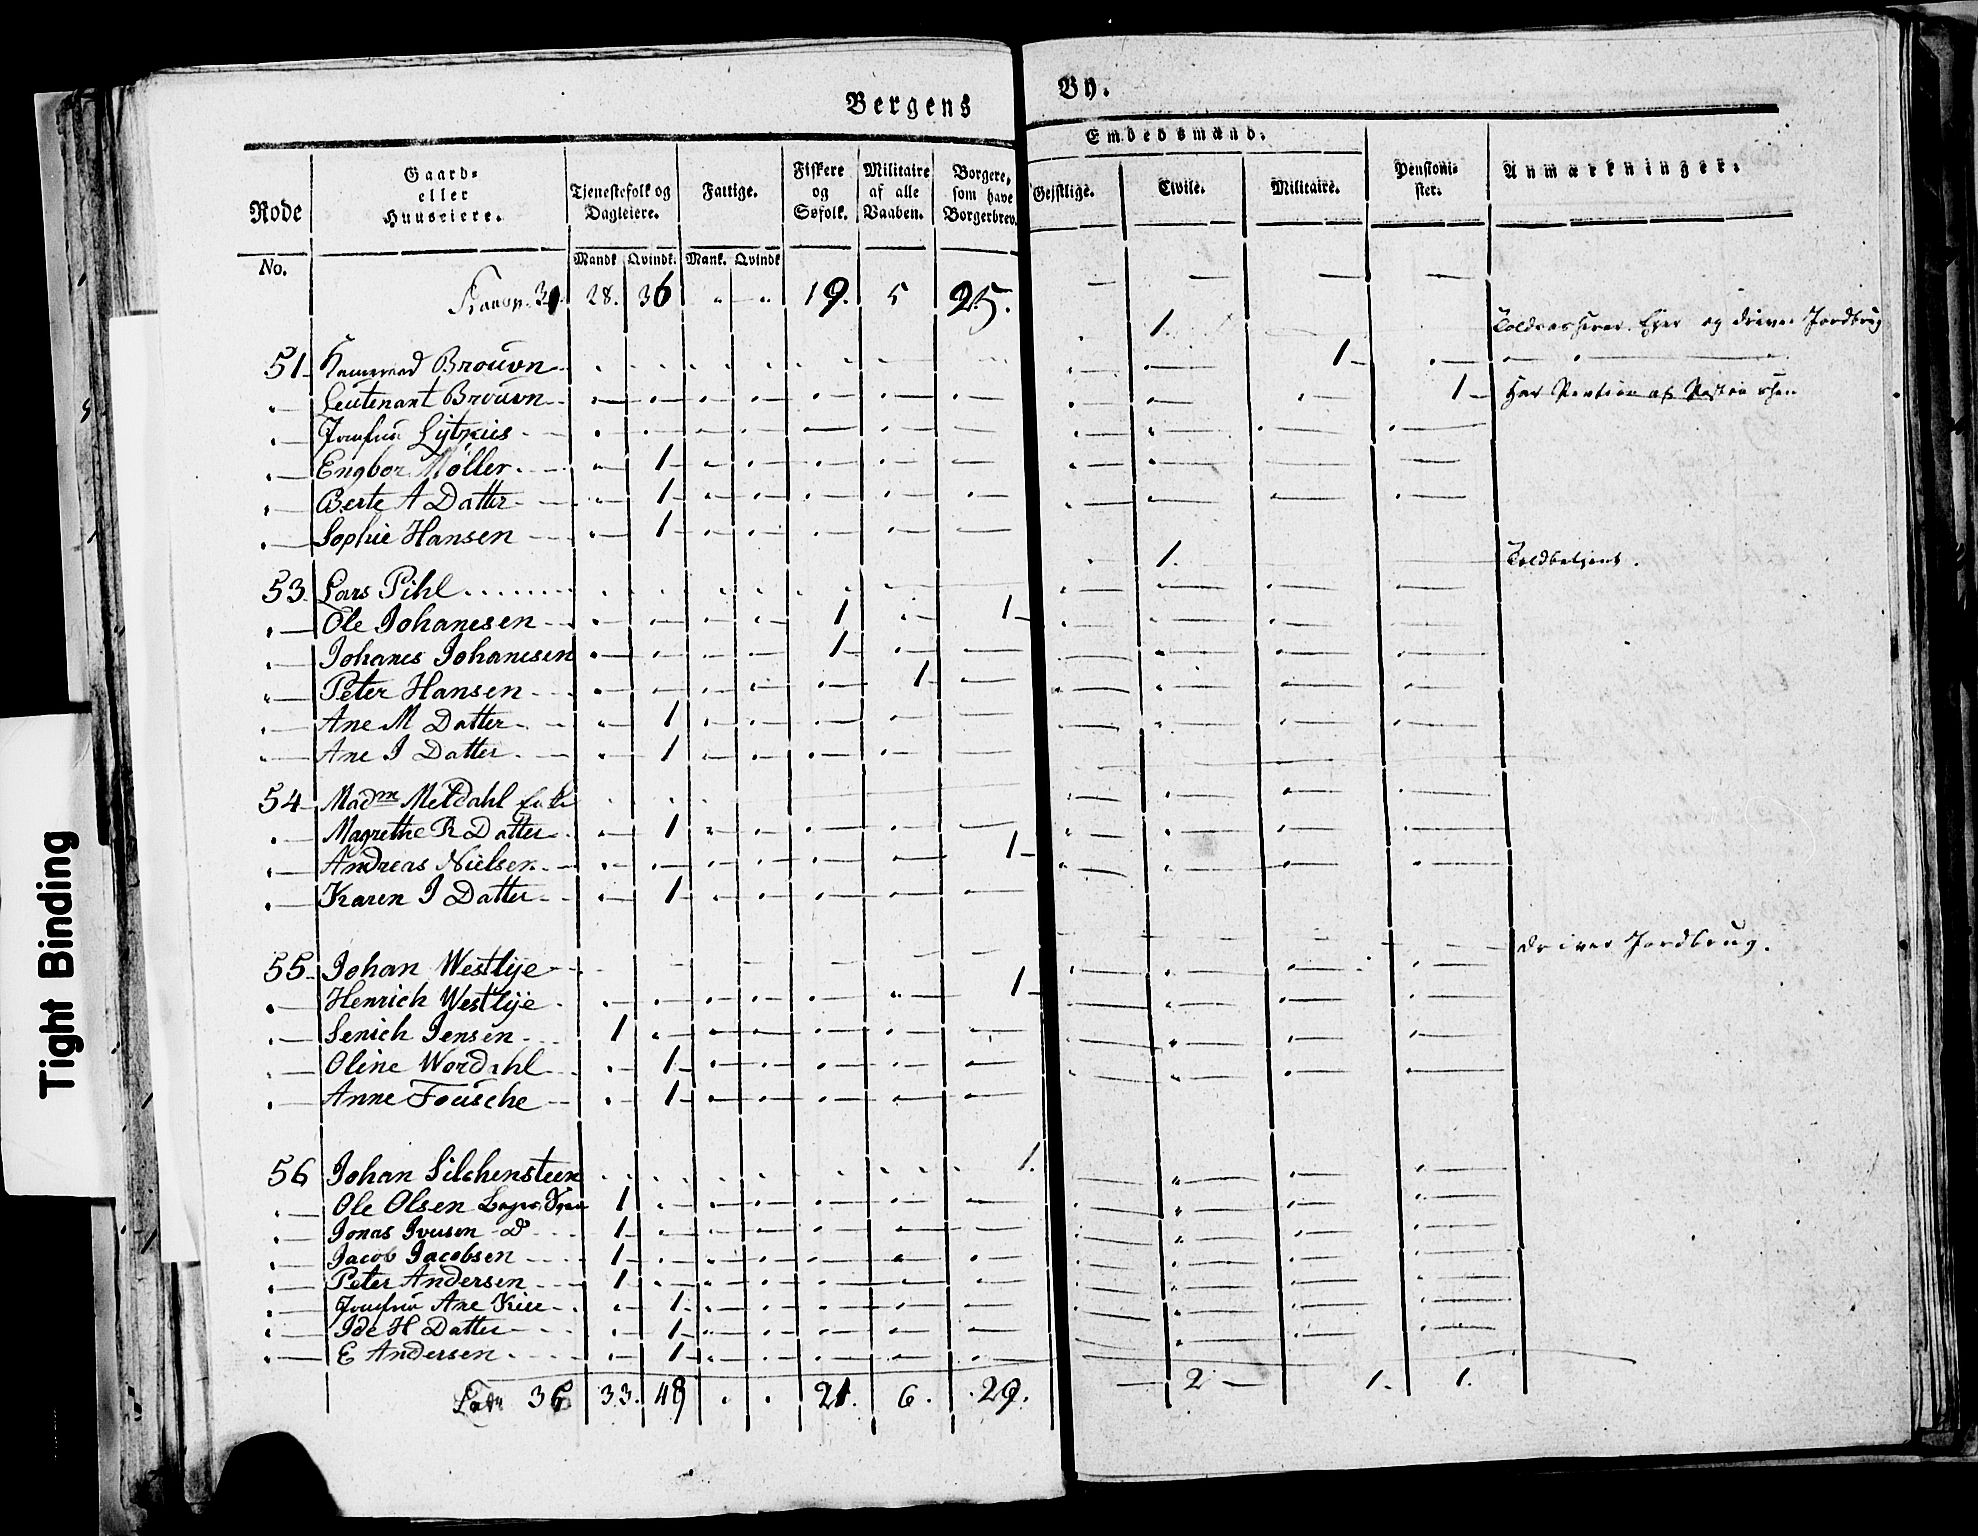 Bergens By.
Rode No. Gaard- eller Huuseiere. Tjenestefolk og Dagleiere. Mandk. Qvindk. Fattige. Mank. Qvindk. Fiskere og Søfolk. Militaire af alle Vaaben. Borgere, som have Borgerbrev. Embedsmænd. Gejstlige. Civile. Militaire. Pensionister. Anmærkninger.
28. 36 „ „ 19. 5 25.
51 Brouvn 1. og driver Jordbrug
„ Leutenant Brouvn 1
„ Jomfru 1 Har Pention af
„ Engbor Møller 1
„ Berte A Datter 1
„ Sophie Hansen 1
53 Lars Pihl 1. Toldbetjent.
„ Ole Johanesen 1 1
„ Johanes Johanesen 1
„ Peter Hansen 1
„ Ane M Datter 1
„ Ane I Datter 1
54 Madm Meldahl
„ Magrethe R Datter 1
„ Andreas Nielsen 1
„ Karen I Datter 1
55 Johan Westlye driver Jordbrug.
„ Henrich Westlye 1
„ Senich Jensen 1
„ Oline Wordahl 1
„ Anne Fousche 1
56 Johan Silchensteen 1.
„ Ole Olsen 1
„ Jonas Iversen D 1
„ Jacob Jacobsen 1
„ Peter Andersen 1
„ Jomfru Ane 1
„ Ide H Datter 1
„ E Andersen 1
36 33. 48 „ „ 21. 6. 29. 2 1. 1.
Tight Binding